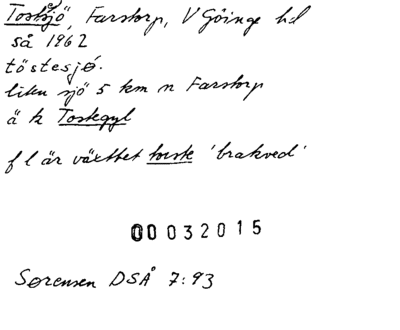 Tosksjö, Farstorp, V Göinge hd
så 1962
töstesjǿ.
liten sjö 5 km n Farstorp
ä k Toskegyl
f l är växttet torsk 'brakved'
00032015
Sørensen DSÅ 7:93